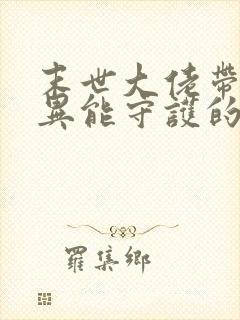 末世大佬帶
異能守護的
羅集鄉